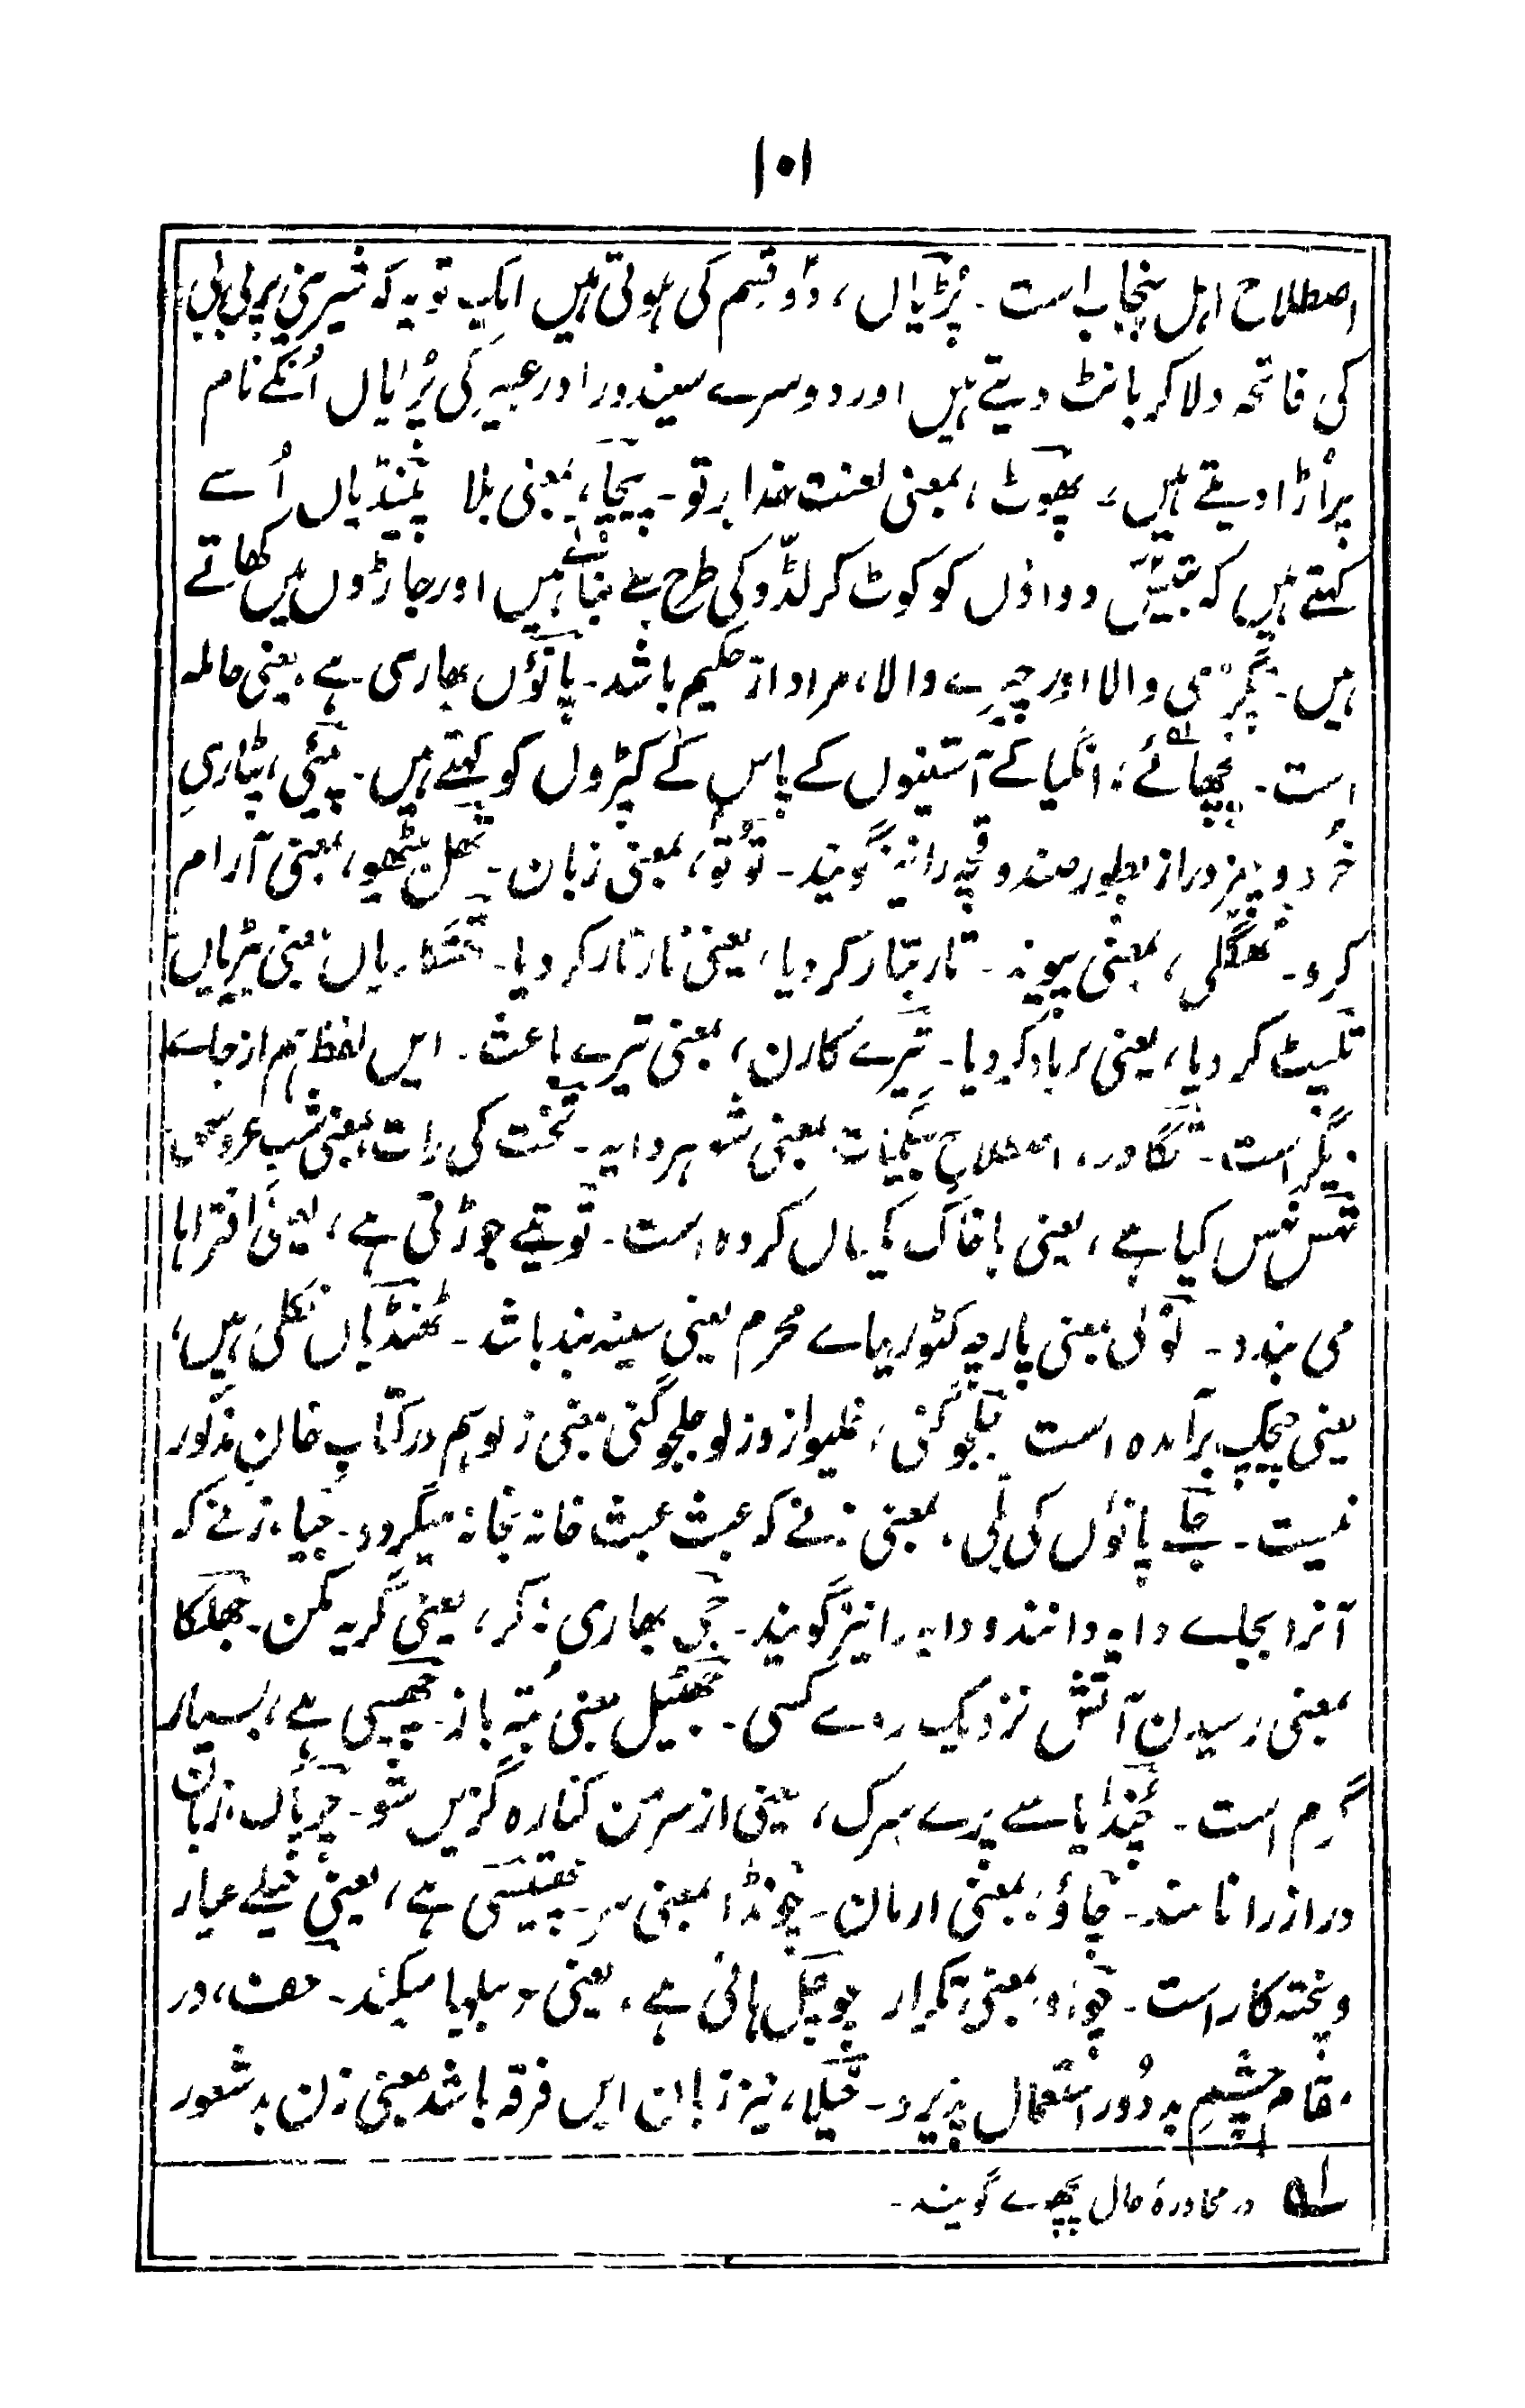 ۱۰۱
اصطلاح اہل پنجاب است۔ پُڑیاں، دو قسم کی ہوتی ہیں ایک تو یہ کہ شیرینی پر بی بی
کی فاتحہ دلا کر بانٹ دیتے ہیں اور دوسرے سیندور اور عبیر کی پُڑیاں اُنکے نام
پر اُڑا دیتے ہیں۔ پھوٹ، بمعنی لعنت خدا بر تو۔ پیچا، بمعنی بلا پنیڈیاں اُسے
کہتے ہیں کہ بتیس دواؤں کو کوٹ کر لڈّو کی طرح سے بناتے ہیں اور جاڑوں میں کھاتے
ہیں۔ پگڑی والا اور چیرے والا، مراد از حکیم باشد۔ پانوؤں بھاری ہے، یعنی حاملہ
است۔ پچھائے، انگیا کے آستینوں کے پاس کے کپڑوں کو کہتے ہیں۔ پٹئی، پٹاریِ
خُرد و نیز دراز بطور صندوقچہ را نیز گویند۔ تُوتُو، بمعنی زبان۔ تھل بیٹھو، بمعنی آرام
کرو۔ تھگلی، بمعنی پیوند۔ تار بتار کر دیا، یعنی تار تار کر دیا۔ تھتکاریاں بمعنی بیڑیاں
تلپٹ کر دیا، یعنی برباد کر دیا۔ تیرے کارن، بمعنی تیرے باعث۔ ایں لفظ ہم از جاے
دیگر است۔ تگاور، اصطلاحِ بیگمیات بمعنی شوہر دایہ۔ تخت کی رات، بمعنی شب عروسی
تہس نہس کیا ہے، یعنی باخاک یکساں کردہ است۔ توتیے جوڑتی ہے، یعنی افتراہا
می بندد۔ توئی بمعنی پارچہ کٹوریہاے محرم یعنی سینہ بند باشد۔ ٹھنڈیاں نکلی ہیں،
یعنی چیچک برآمدہ است جلجوگنی، غلیواز و زلو جلجوگنی بمعنی زلو ہم در کتابِ خان مذکور
نیست۔ جلے پانوؤں کی بلی، بمعنی زنے کہ عبث عبث خانہ بخانہ میگردد۔ جیا، زنے کہ
آنرا بجاے دایہ دانند و دایہ را نیز گویند۔ جی بھاری نہ کر، یعنی گریہ مکن۔ جھلکا
بمعنی رسیدن آتش نزدیک روے کسی۔ جھبیل بمعنی تبہ باز۔ چھیسی ہے، بسیار
گرم است۔ چندیا سے پرے سرک، یعنی از سرمن کنارہ گزیں شو۔ چرباک، زبان
دراز را نامند۔ چاؤ، بمعنی ارمان۔ چونڈا بمعنی سر۔ چھتیسی ہے، یعنی خیلے عیار
و پختہ کار است۔ چواؤ، بمعنی تکرار چوچل ہائی ہے، یعنی دہلہا میکند۔ حف، در
مقام چشمِ بد دُور استعمال پذیرد۔ خیلا، نیز زبان ایں فرقہ باشد بمعنی زن بد شعور
لہ در محاورۂ حال پچھوے گویند۔